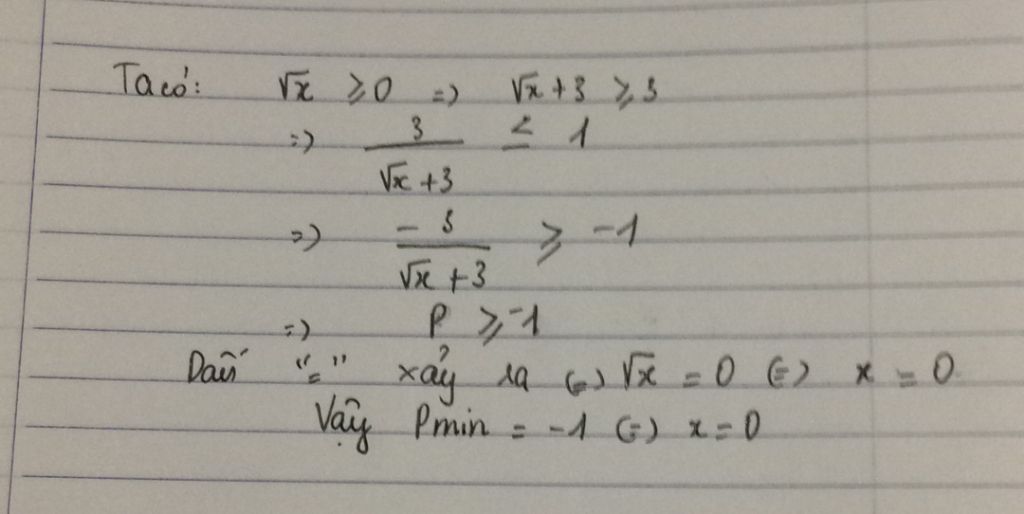 Ta có: √x ≥ 0 => √x + 3 ≥ 3
=> 3/(√x + 3) ≤ 1
=> -3/(√x + 3) ≥ -1
=> P ≥ -1
Dấu "=" xảy ra (=) √x = 0 (=) x = 0
Vậy Pmin = -1 (=) x = 0